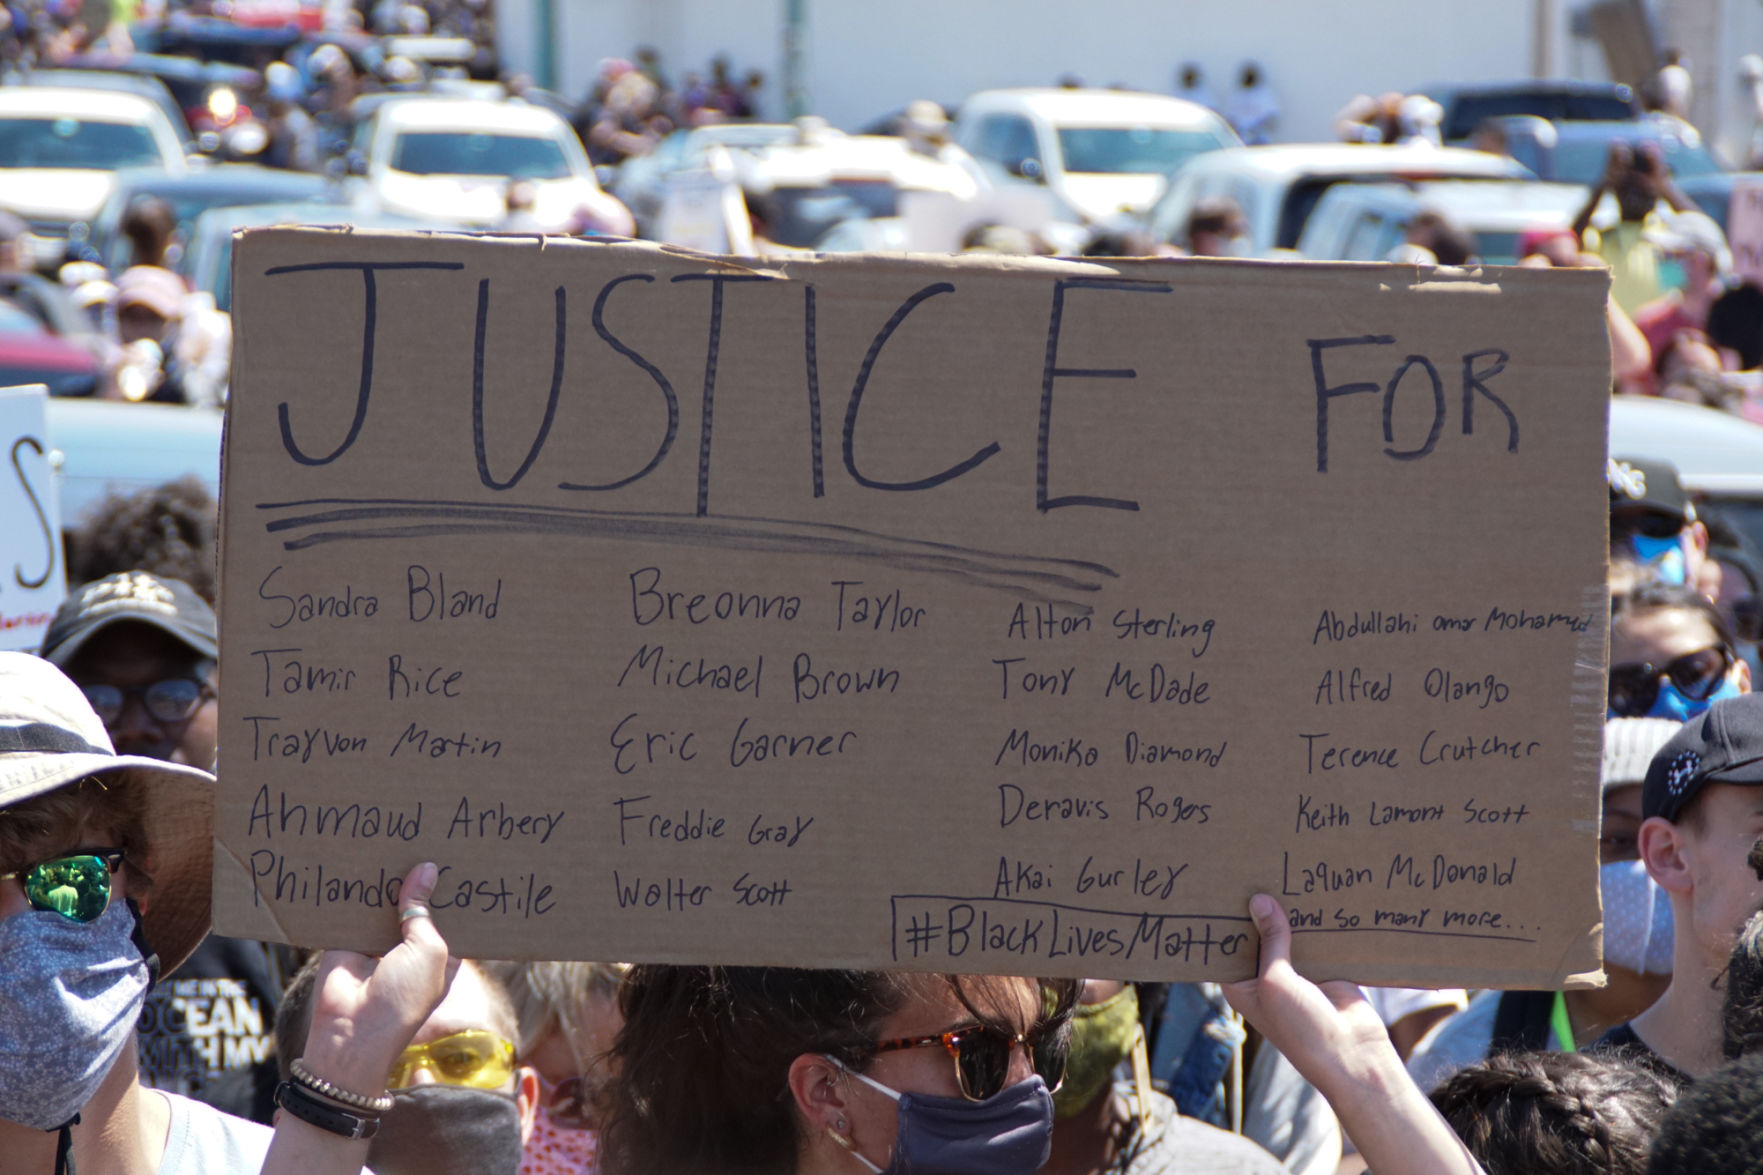 JUSTICE FOR
Sandra Bland
Tamir Rice
Trayvon Martin
Ahmaud Arbery
Philando Castile
Breonna Taylor
Michael Brown
Eric Garner
Freddie Gray
Walter Scott
Alton Sterling
Tony McDade
Monika Diamond
Deravis Rogers
Akai Gurley
#BlackLivesMatter
Abdullahi omar Mohamed
Alfred Olango
Terence Crutcher
Keith Lamont Scott
Laquan McDonald
and so many more...
S
ME IN THE
OCEAN
WITH MY